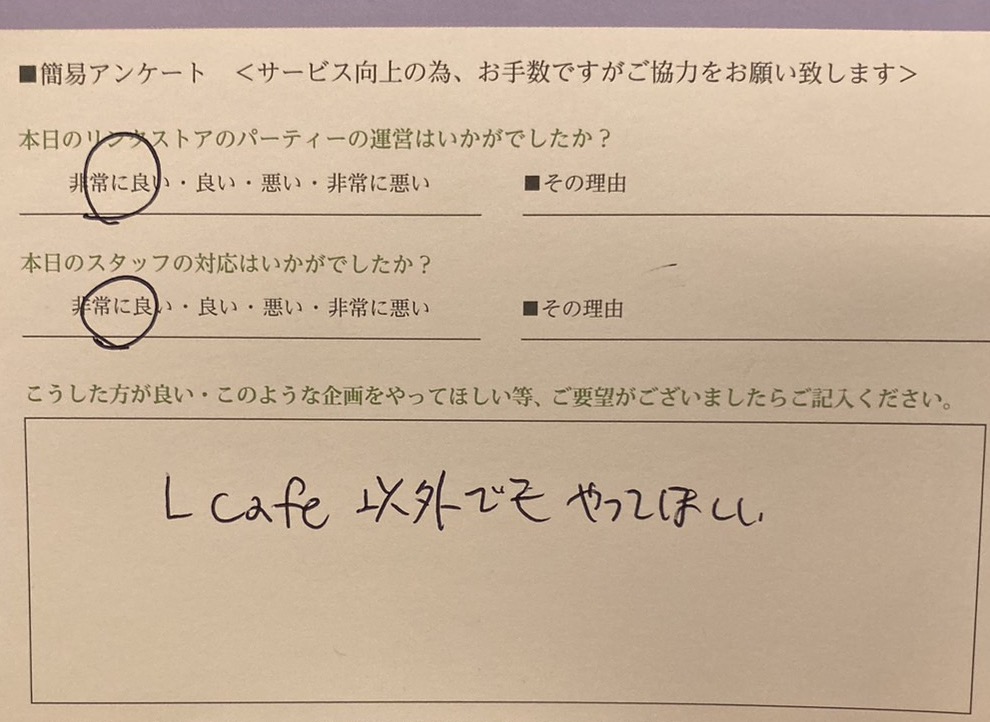 ■簡易アンケート <サービス向上の為、お手数ですがご協力をお願い致します>
本日のリンクストアのパーティーの運営はいかがでしたか？
非常に良い・良い・悪い・非常に悪い ■その理由
本日のスタッフの対応はいかがでしたか？
非常に良い・良い・悪い・非常に悪い ■その理由
こうした方が良い・このような企画をやってほしい等、ご要望がございましたらご記入ください。
L cafe 以外でも やってほしい